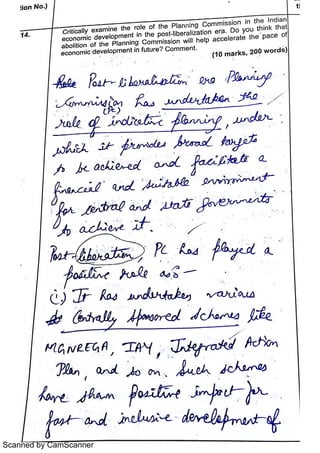 tion No.)
14.
Critically examine the role of the Planning Commission in the Indian
economic development in the post-liberalization era. Do you think that
abolition of the Planning Commission will help accelerate the pace of
economic development in future? Comment.
(10 marks, 200 words)
Post-liberalisation era Planning
Commission has undertaken the
(PC)
role of indicative planning, under
which it provides broad targets
to be achieved and facilitate a
financial and suitable environment
for central and state governments
to achieve it.
Post-liberation, PC has played a
positive role as-
(i) It has undertaken various
Centrally Sponsored Schemes like
MGNREGA, IAY, Integrated Action
Plan, and so on. Such schemes
have shown positive impact for
fast and inclusive development of
Scanned by CamScanner